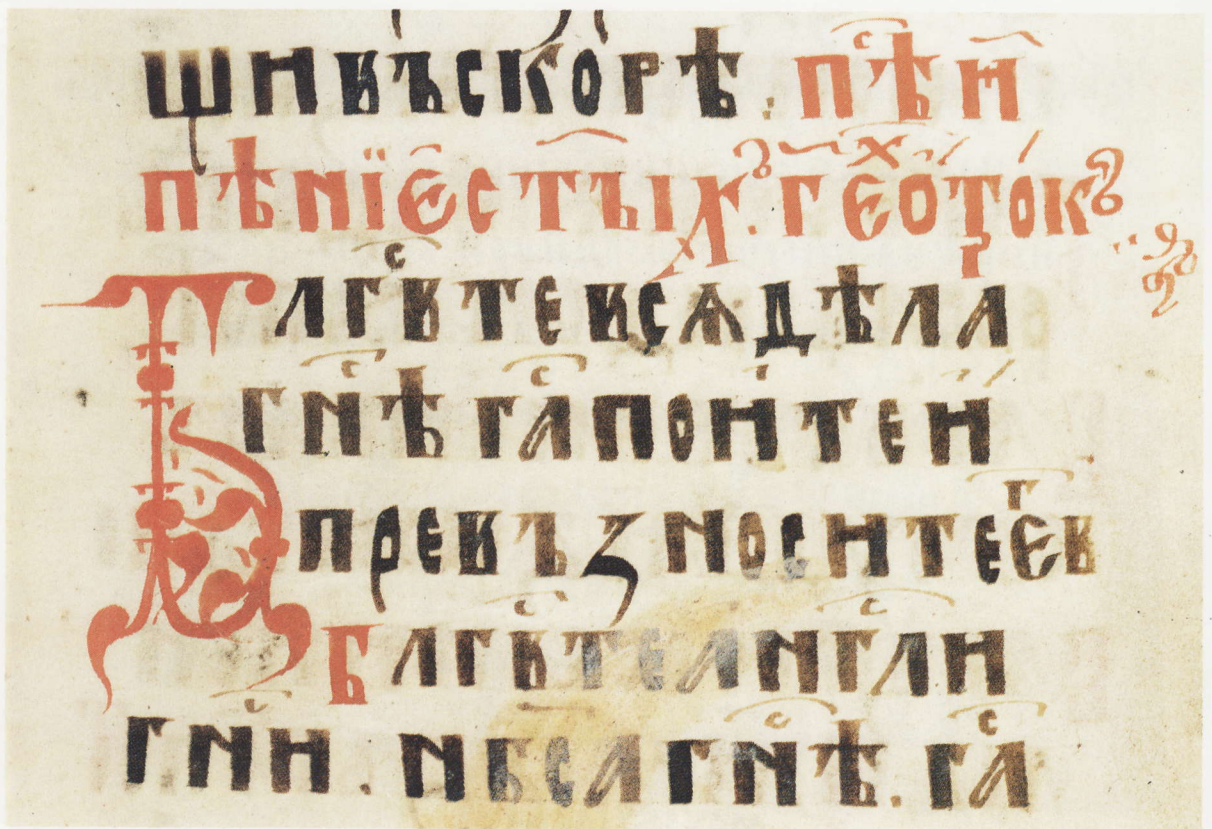 щивъскорѣ. пѣн҇
пѣнїєс҇тъіхъ. г҃ єѻтрокъ
Блгⷭ҇вите всѧ дѣла
гнⷭ҇ѣ гаⷭ҇ поитей
превъзноситеєгⷢ҇в
Блгвⷭ҇теангⷭ҇ли
гнⷭ҇и. нбса гнⷭ҇ѣ. гаⷭ҇